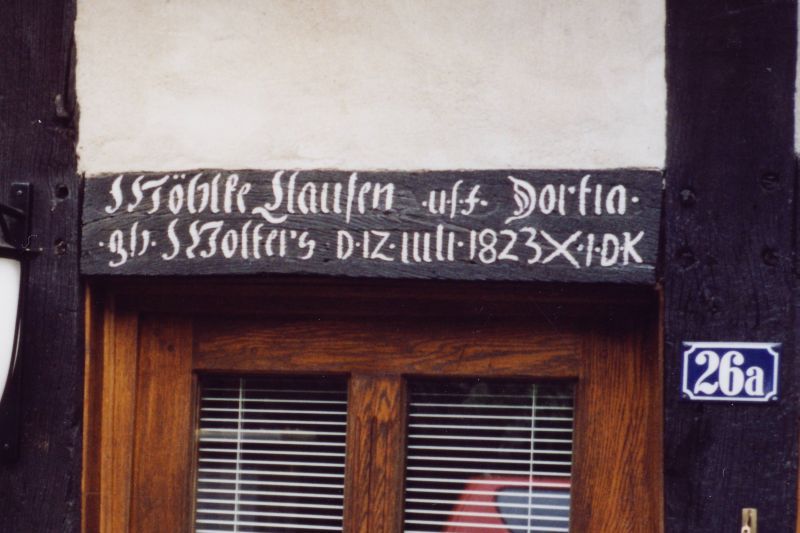 Möhlke Clausen u.f.f. Dortia.
.gb. Wolters D.12.iuli.1823 X.I.D.K
26a